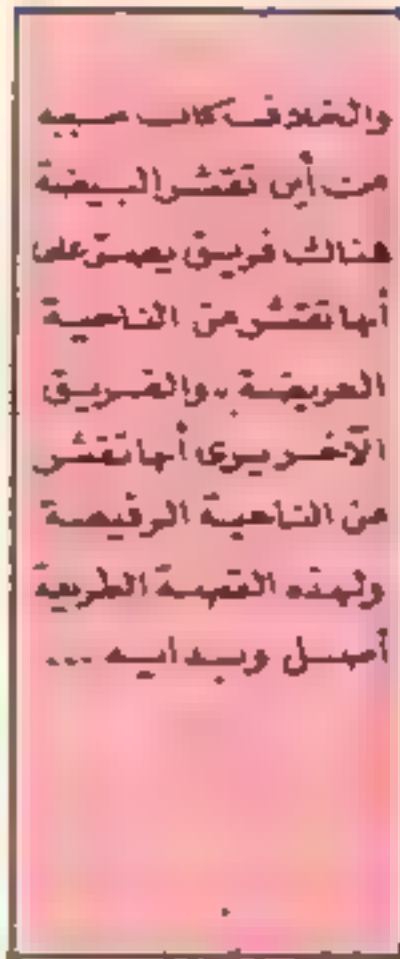 والخلاف كان سببه
من أين تقشر البيضة
هناك فريق يصر على
أنها تقشر من الناحية
العريضة .. والفريق
الآخر يرى أنها تقشر
من الناحية الرفيعة
ولهذه القصة الطريفة
أصل وبداية ...